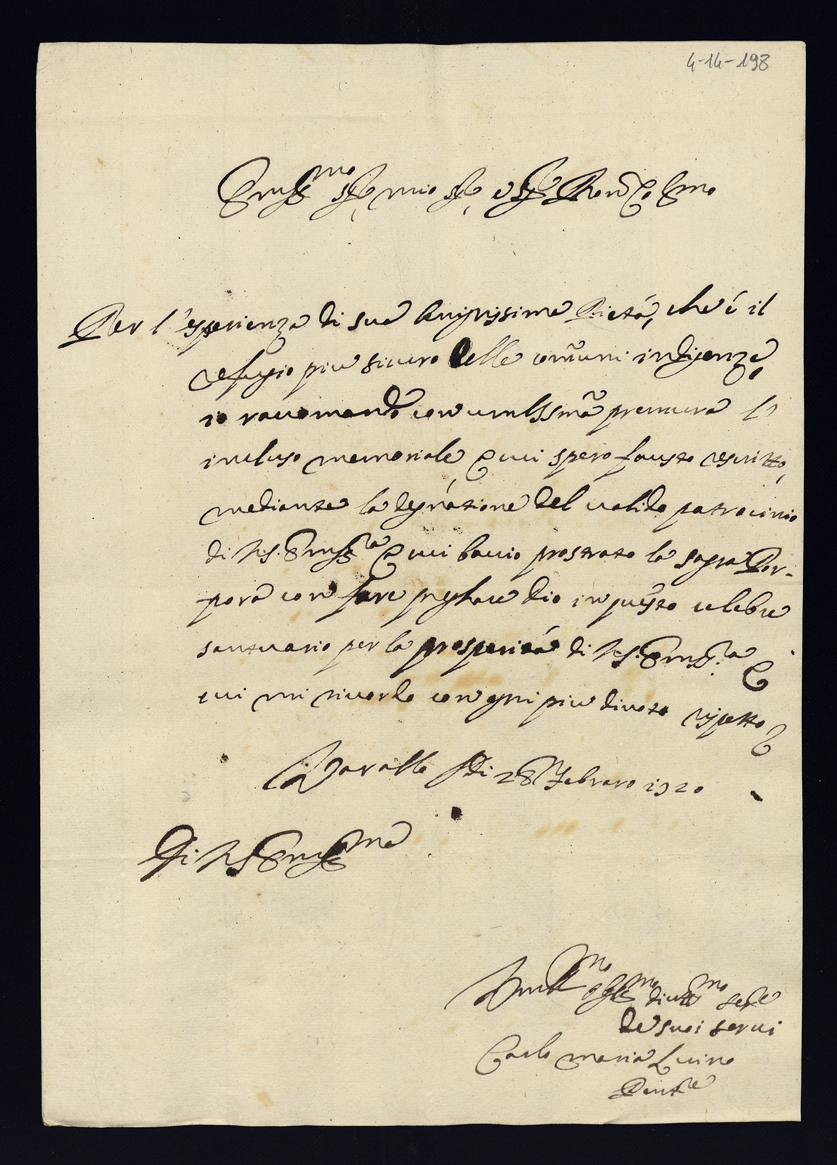 4-14-198
Em.mo Sig.r mio Sig.r, e Sig.r Pron Co.lmo
Per l'esperienza di sua benignissima Pietà, che è il
refugio piu sicuro delle comuni indigenze
io racomando con umilissima premura l'
incluso memoriale, a cui spero fausto rescritto,
mediante la degnazione del valido patrocinio
di V.S. Em.za a cui baccio prostrato la sagra Por-
pora con fare preghare dio in questo celebre
santuario per la prosperità di V.S. Em.za a
cui mi ricordo con ogni piu divoto rispetto
Varallo Di 28 Febraro 1720
Di V.S. Em.ma
Umil.mo obblig.mo divot.mo ser.e
de suoi servi
Carlo Maria Luino